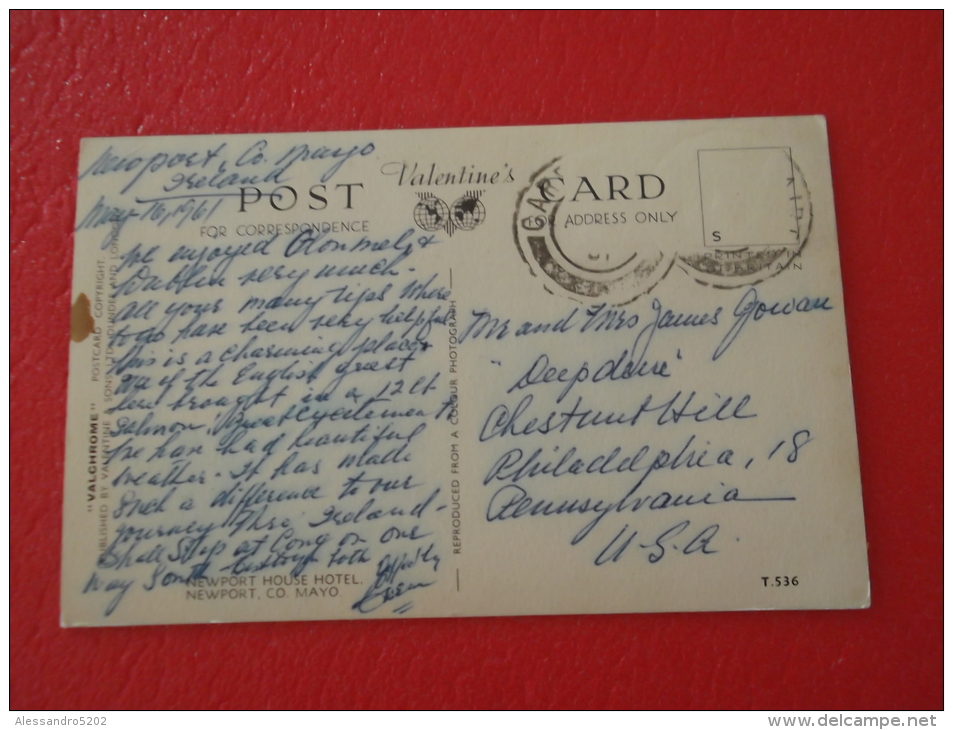 Newport, Co. Mayo
Ireland
May 16, 1961
POST
Valentine's
CARD
FOR CORRESPONDENCE
ADDRESS ONLY
S
PRINTED IN
BRITAIN
We enjoyed Clonmel &
Dublin very much.
all your many tips where
to go have been very helpful
This is a charming place &
one of the English guest
here brought in a 12 lb
salmon! Great excitement
We have had beautiful
weather. It has made
such a difference to our
journey thro. Ireland -
Shall stop at Cong on our
way South
Mr and Mrs James Gowan
"Deepdene"
Chestnut Hill
Philadelphia, 18
Pennsylvania
U.S.A.
"VALCHROME" POSTCARD COPYRIGHT.
PUBLISHED BY VALENTINE & SONS LTD DUNDEE AND LONDON
REPRODUCED FROM A COLOUR PHOTOGRAPH
NEWPORT HOUSE HOTEL,
NEWPORT, CO. MAYO
T.536
Alessandro5202
www.delcampe.net